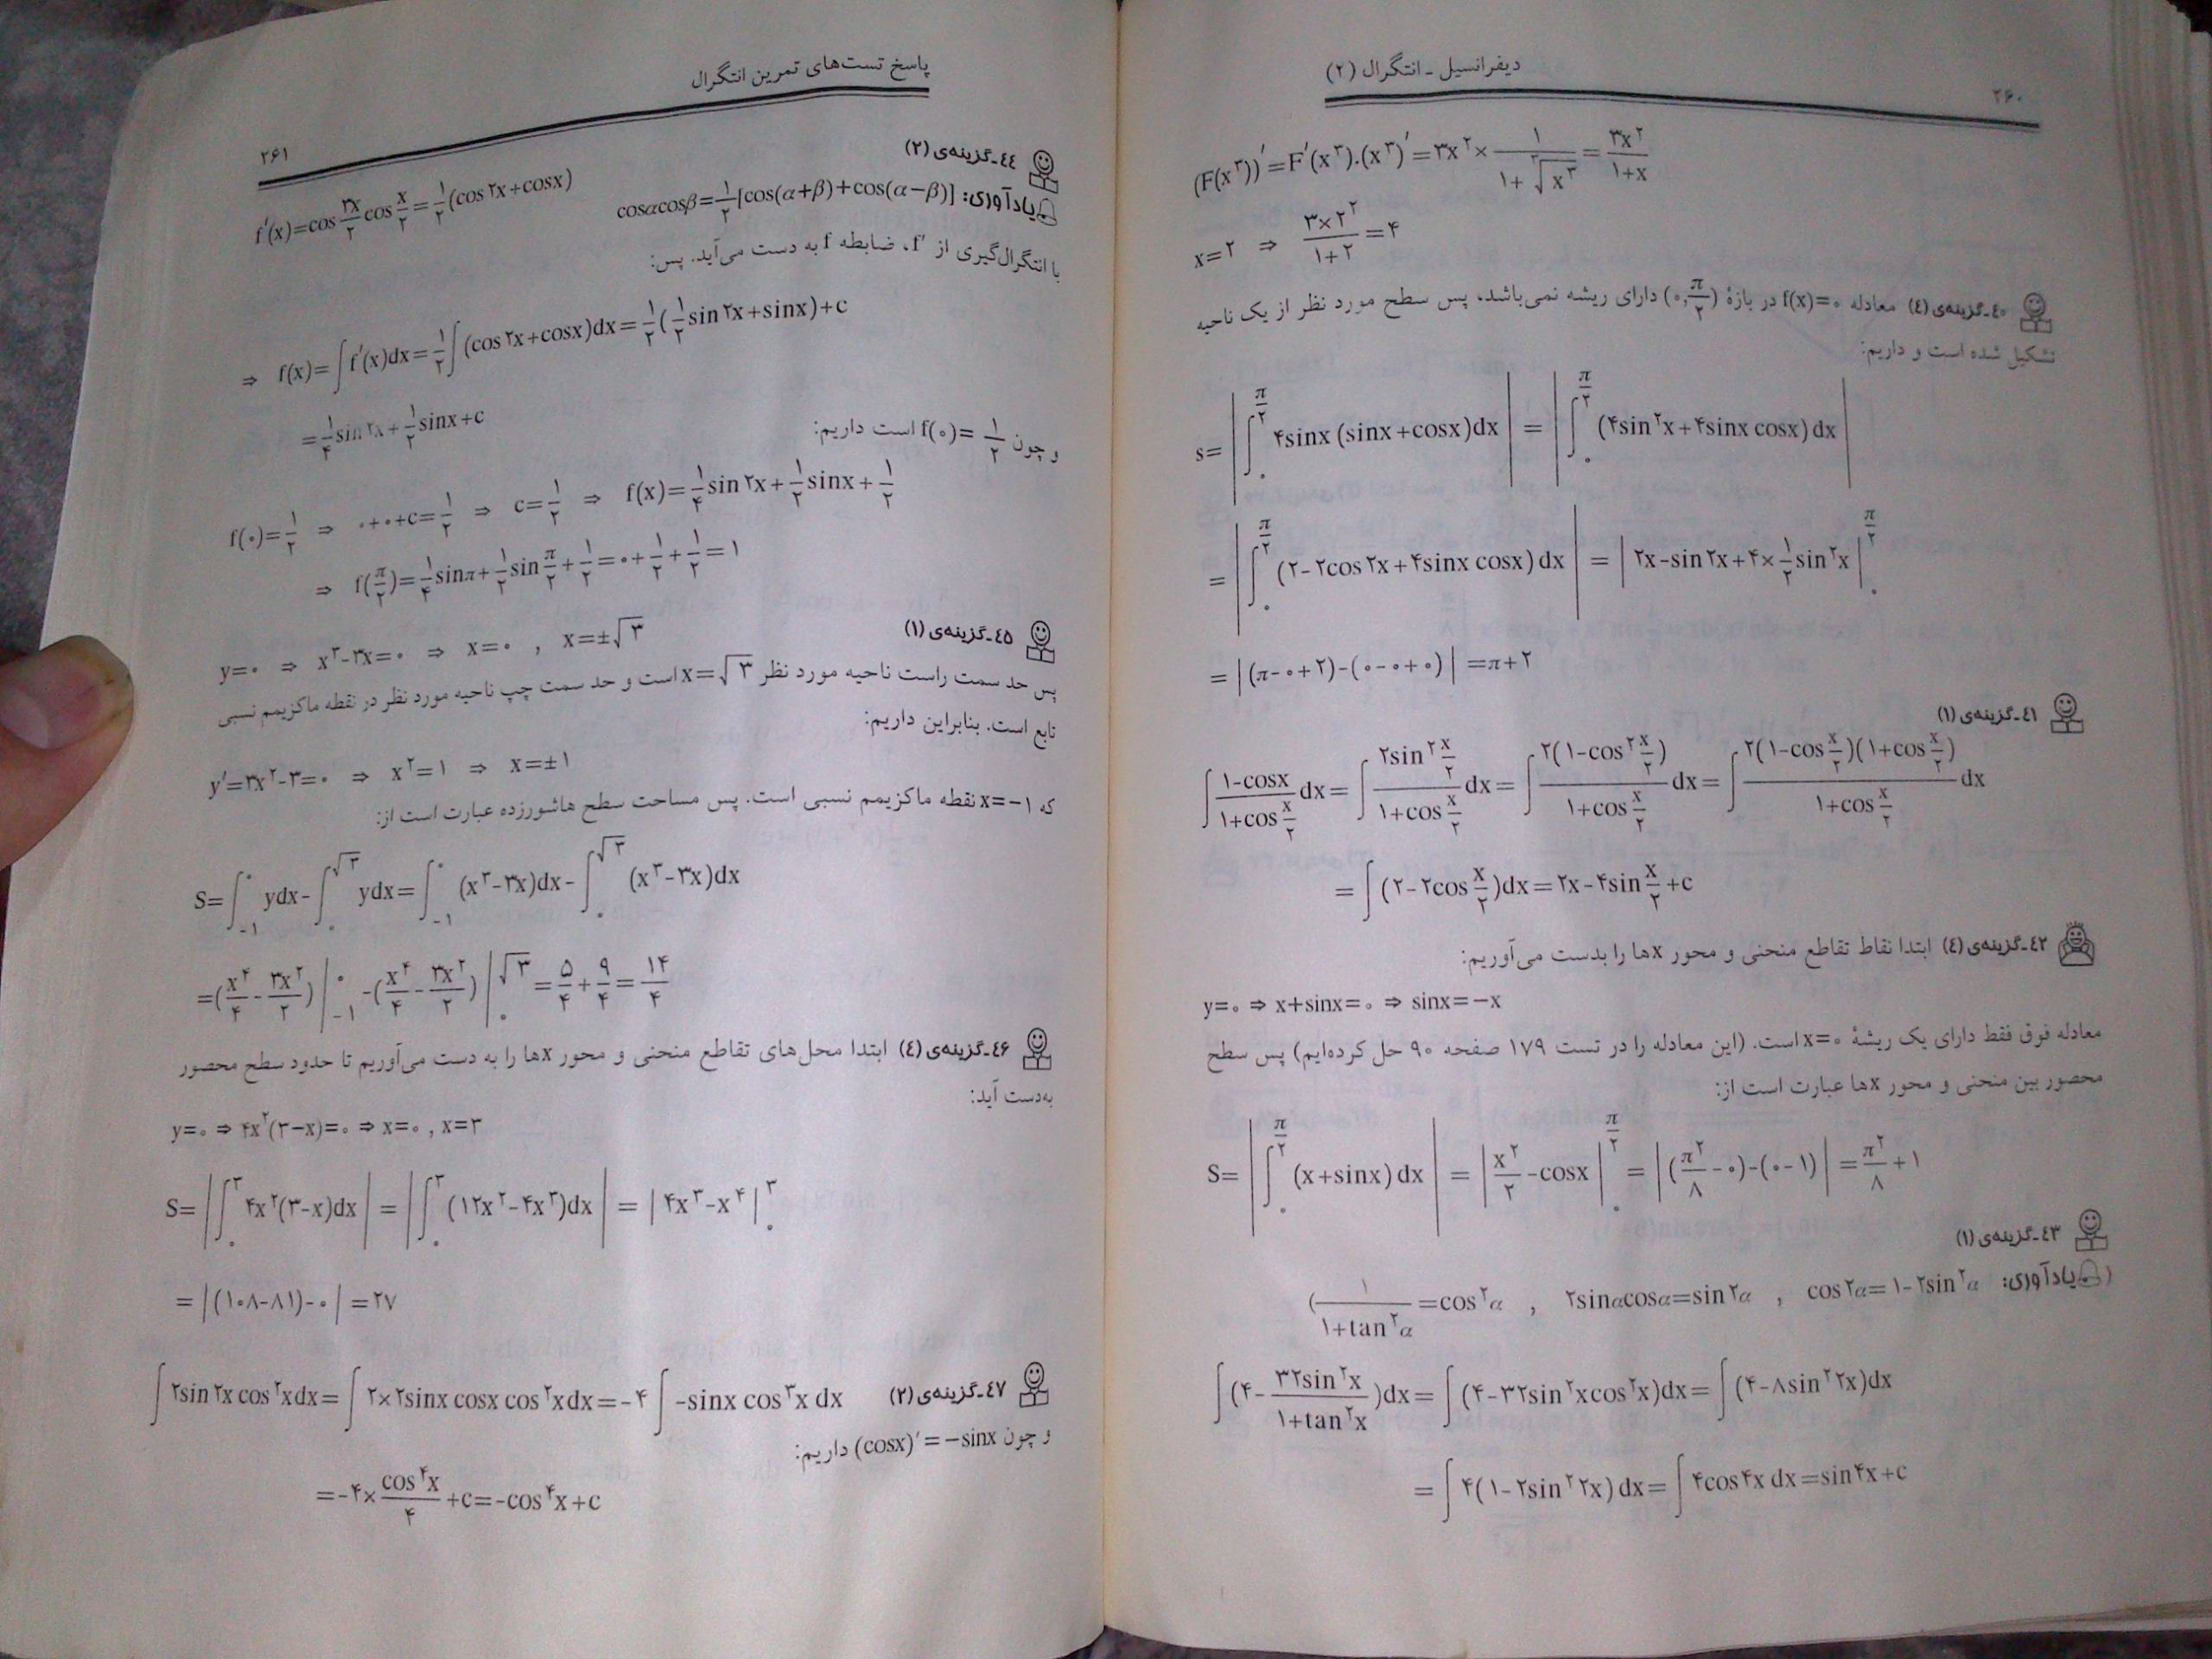 دیفرانسیل ـ انتگرال (۲)
۲۶۰
(F(x۳))′=F′(x۳).(x۳)′=۳x۲×۱/(۱+۳√x۳)=۳x۲/(۱+x)
x=۲ ⇒ (۳×۲۲)/(۱+۲)=۴
۴۰ـ گزینه‌ی (۴) معادله f(x)=۰ در بازۀ (۰,π/۲) دارای ریشه نمی‌باشد، پس سطح مورد نظر از یک ناحیه
تشکیل شده است و داریم:
s=|∫۰^π/۲ ۴sinx(sinx+cosx)dx|=|∫۰^π/۲ (۴sin۲x+۴sinx cosx)dx|
=|∫۰^π/۲ (۲-۲cos۲x+۴sinx cosx)dx|=|۲x-sin۲x+۴×۱/۲sin۲x|۰^π/۲
=|(π-۰+۲)-(۰-۰+۰)|=π+۲
۴۱ـ گزینه‌ی (۱)
∫(۱-cosx)/(۱+cos x/۲)dx=∫(۲sin۲ x/۲)/(۱+cos x/۲)dx=∫۲(۱-cos۲ x/۲)/(۱+cos x/۲)dx=∫۲(۱-cos x/۲)(۱+cos x/۲)/(۱+cos x/۲)dx
=∫(۲-۲cos x/۲)dx=۲x-۴sin x/۲+c
۴۲ـ گزینه‌ی (۴) ابتدا نقاط تقاطع منحنی و محور xها را بدست می‌آوریم:
y=۰ ⇒ x+sinx=۰ ⇒ sinx=-x
معادله فوق فقط دارای یک ریشۀ x=۰ است. (این معادله را در تست ۱۷۹ صفحه ۹۰ حل کرده‌ایم) پس سطح
محصور بین منحنی و محور xها عبارت است از:
S=|∫۰^π/۲ (x+sinx)dx|=|x۲/۲-cosx|۰^π/۲=|(π۲/۸-۰)-(۰-۱)|=π۲/۸+۱
۴۳ـ گزینه‌ی (۱)
(یادآوری: cos۲α=۱-۲sin۲α , ۲sinαcosα=sin۲α , ۱/(۱+tan۲α)=cos۲α)
∫(۴-۳۲sin۲x/(۱+tan۲x))dx=∫(۴-۳۲sin۲xcos۲x)dx=∫(۴-۸sin۲۲x)dx
=∫۴(۱-۲sin۲۲x)dx=∫۴cos۴x dx=sin۴x+c
پاسخ تست‌های تمرین انتگرال
۲۶۱
۴۴ـ گزینه‌ی (۲)
یادآوری: cosαcosβ=۱/۲[cos(α+β)+cos(α-β)]
f′(x)=cos ۳x/۲ cos x/۲=۱/۲(cos۲x+cosx)
با انتگرال‌گیری از f′، ضابطه f به دست می‌آید. پس:
⇒ f(x)=∫f′(x)dx=۱/۲∫(cos۲x+cosx)dx=۱/۲(۱/۲sin۲x+sinx)+c
=۱/۴sin۲x+۱/۲sinx+c
و چون f(۰)=۱/۲ است داریم:
f(۰)=۱/۲ ⇒ ۰+۰+c=۱/۲ ⇒ c=۱/۲ ⇒ f(x)=۱/۴sin۲x+۱/۲sinx+۱/۲
⇒ f(π/۲)=۱/۴sinπ+۱/۲sin π/۲+۱/۲=۰+۱/۲+۱/۲=۱
۴۵ـ گزینه‌ی (۱)
y=۰ ⇒ x۳-۳x=۰ ⇒ x=۰ , x=±√۳
پس حد سمت راست ناحیه مورد نظر x=√۳ است و حد سمت چپ ناحیه مورد نظر در نقطه ماکزیمم نسبی
تابع است. بنابراین داریم:
y′=۳x۲-۳=۰ ⇒ x۲=۱ ⇒ x=±۱
که x=-۱ نقطه ماکزیمم نسبی است. پس مساحت سطح هاشورزده عبارت است از:
S=∫-۱^۰ ydx-∫۰^√۳ ydx=∫-۱^۰ (x۳-۳x)dx-∫۰^√۳ (x۳-۳x)dx
=(x۴/۴-۳x۲/۲)|-۱^۰-(x۴/۴-۳x۲/۲)|۰^√۳=۵/۴+۹/۴=۱۴/۴
۴۶ـ گزینه‌ی (۴) ابتدا محل‌های تقاطع منحنی و محور xها را به دست می‌آوریم تا حدود سطح محصور
به‌دست آید:
y=۰ ⇒ ۴x۲(۳-x)=۰ ⇒ x=۰ , x=۳
S=|∫۰^۳ ۴x۲(۳-x)dx|=|∫۰^۳ (۱۲x۲-۴x۳)dx|=|۴x۳-x۴|۰^۳
=|(۱۰۸-۸۱)-۰|=۲۷
۴۷ـ گزینه‌ی (۲) ∫۲sin۲x cos۲xdx=∫۲×۲sinx cosx cos۲xdx=-۴∫-sinx cos۳x dx
و چون (cosx)′=-sinx داریم:
=-۴×cos۴x/۴+c=-cos۴x+c